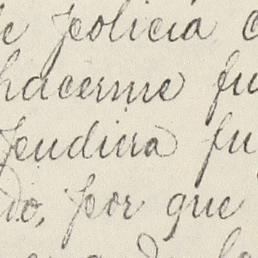 de policia
hacerme fu
pudiera fu
do, por que